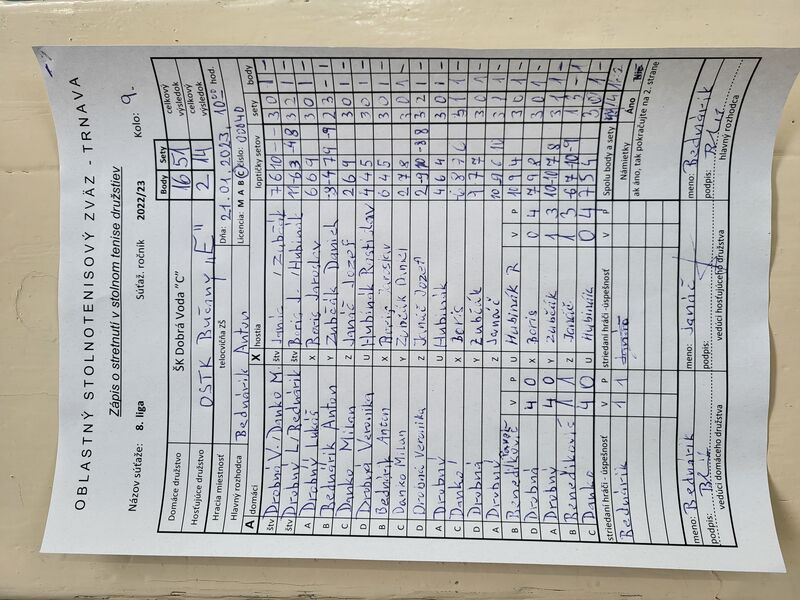 OBLASTNÝ STOLNOTENISOVÝ ZVÄZ - TRNAVA
Zápis o stretnutí v stolnom tenise družstiev
Názov súťaže: 8. liga Súťaž. ročník 2022/23 Kolo: 9.
Domáce družstvo ŠK Dobrá Voda "C" Body Sety celkový výsledok
16 51
Hosťujúce družstvo OSTK Bučany "E" 2 14 celkový výsledok
Hracia miestnosť telocvičňa ZŠ Dňa: 21.01.2023, 10:00 hod.
Hlavný rozhodca Bednárik Anton Licencia: M A B C číslo: 00040
A domáci X hostia loptičky setov sety body
štv Drobná V./Danko M. štv Janič /Zubčák 7 6 10 - - 3 0 1 -
štv Drobný L/Bednárik štv Boris J. /Hubinik 11 -6 3 -4 8 3 2 1 -
A Drobný Lukáš X Boris Jaroslav 6 6 9 3 0 1 -
B Bednárik Anton Y Zubčák Daniel 2 3 - 1
C Danko Milan Z Janič Jozef 2 6 9 3 0 1 -
D Drobná Veronika U Hubinik Rastislav 4 4 5 3 0 1 -
B Bednárik Anton X Boris Jaroslav 6 4 5 3 0 1 -
C Danko Milan Y Zubčák Daniel 2 7 8 3 0 1 -
D Drobná Veronika Z Janič Jozef 3 2 1 -
A Drobný U Hubinik 4 6 4 3 0 1 -
C Danko X Boris 3 1 1
D Drobná Y Zubčák 9 7 7 3 0 1 -
A Drobný Z Janič 3 1 1 -
B Benedikovič U Hubinik R 10 9 4 3 0 1 -
D Drobná 4 0 X Boris 0 4 7 9 8 3 0 1 -
A Drobný 4 0 Y Zubčák 1 3 10 -10 7 8 3 1 1
B Benedikovič 1 1 Z Janič 1 3 -6 7 -10 -9 1 3 - 1
C Danko 4 0 U Hubinik 0 4 7 5 4 3 0 1 -
striedaní hráči - úspešnosť V P striedaní hráči - úspešnosť V P Spolu body a sety
Bednárik 1 1
Námietky Áno Nie
ak áno, tak pokračujte na 2. strane
meno: Bednárik meno: Janič meno: Bednárik
podpis: podpis: podpis:
vedúci domáceho družstva vedúci hosťujúceho družstva hlavný rozhodca